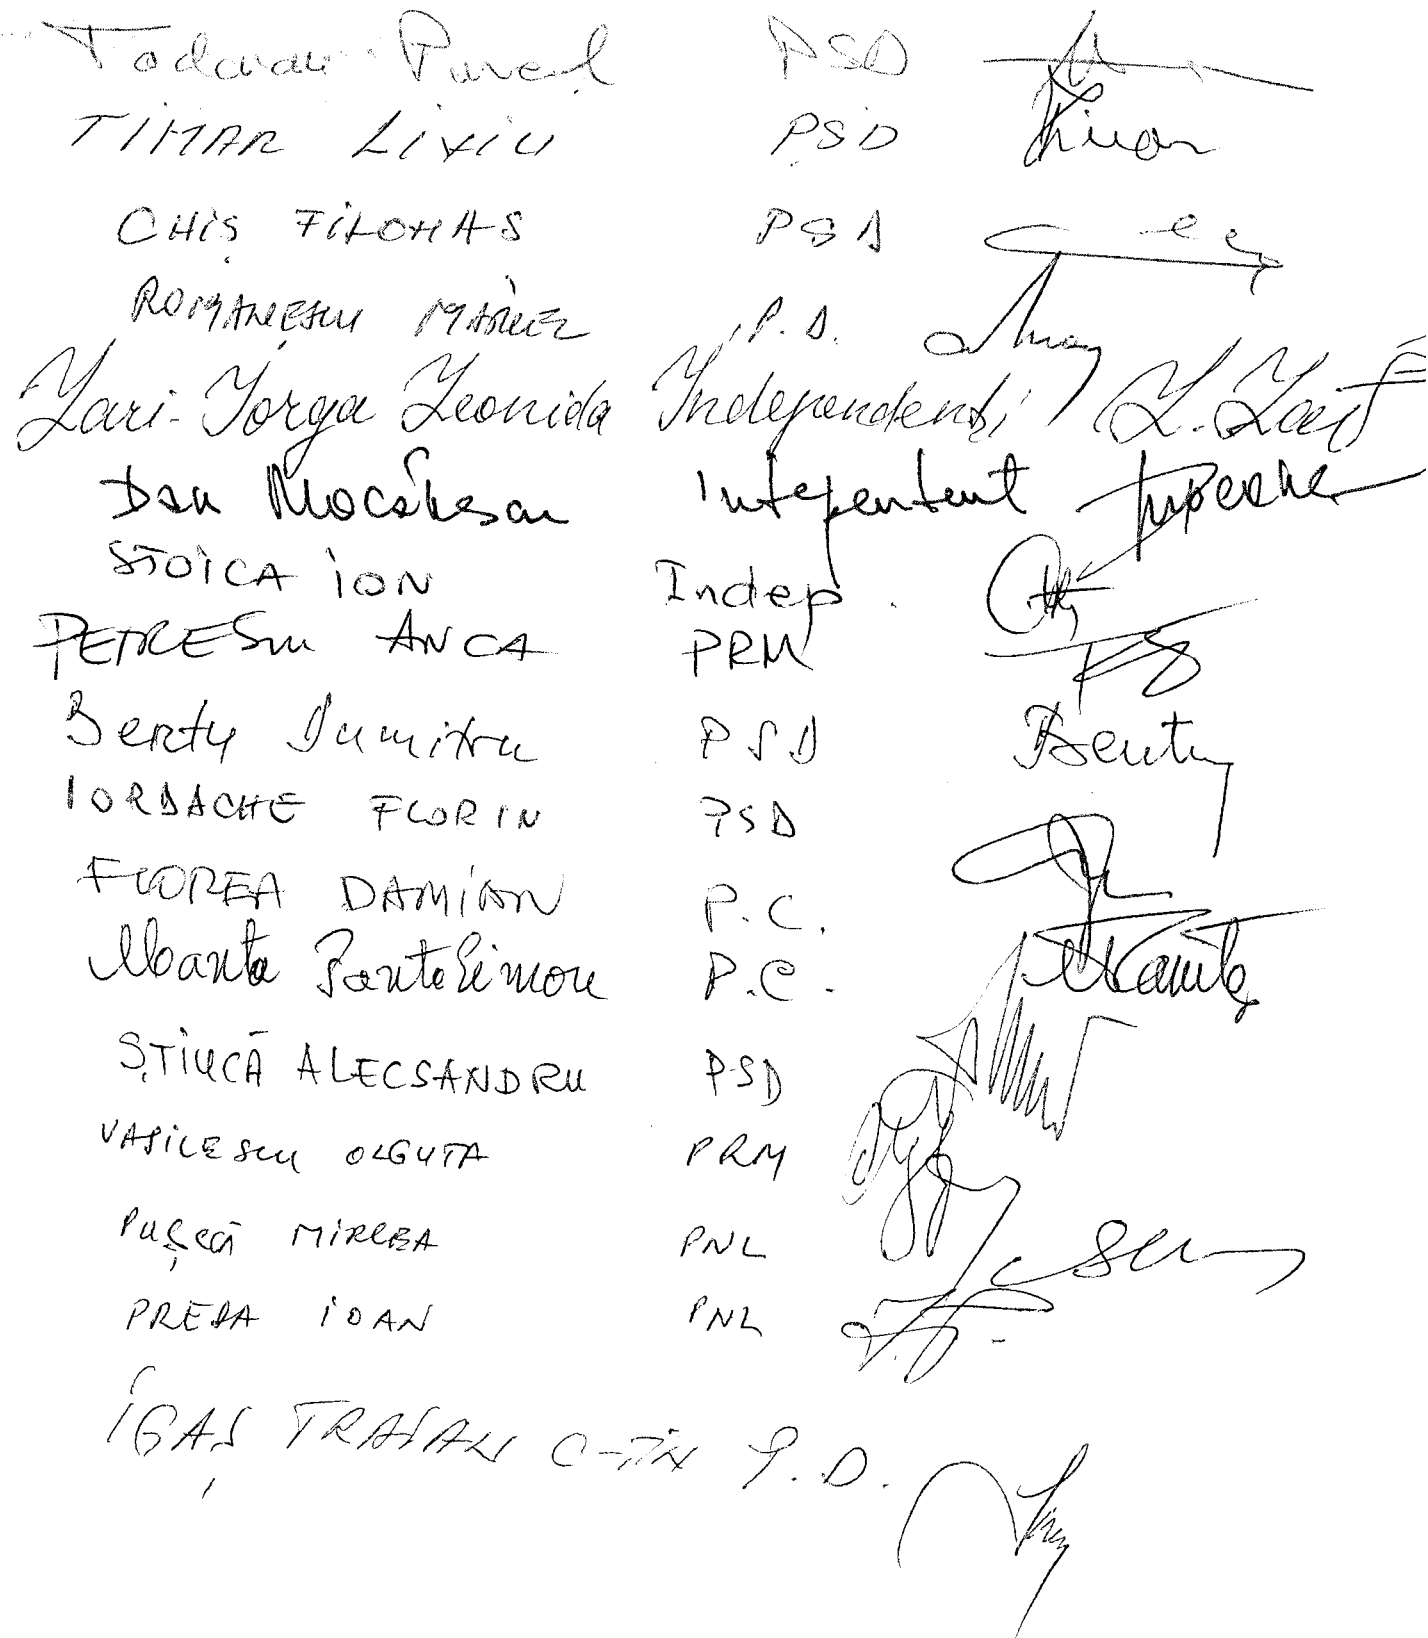 Todoran Pavel PSD
TIMAR LIVIU PSD
CHIȘ FILONAS PSD
ROMANESCU MARCEL P.D.
Lari-Iorga Leonida Independenți L. Lari
Dan Mocănescu Independent
STOICA ION Indep.
PETRESCU ANCA PRM
Bentu Dumitru PSD Bentu
IORDACHE FLORIN PSD
FLOREA DAMIAN P.C.
Manta Pantelimon P.C. Manta
ȘTIUCĂ ALECSANDRU PSD
VASILESCU OLGUTA PRM
PUȘCĂ MIRCEA PNL
PREDA IOAN PNL
IGAȘ TRAIAN C-TIN P.D.